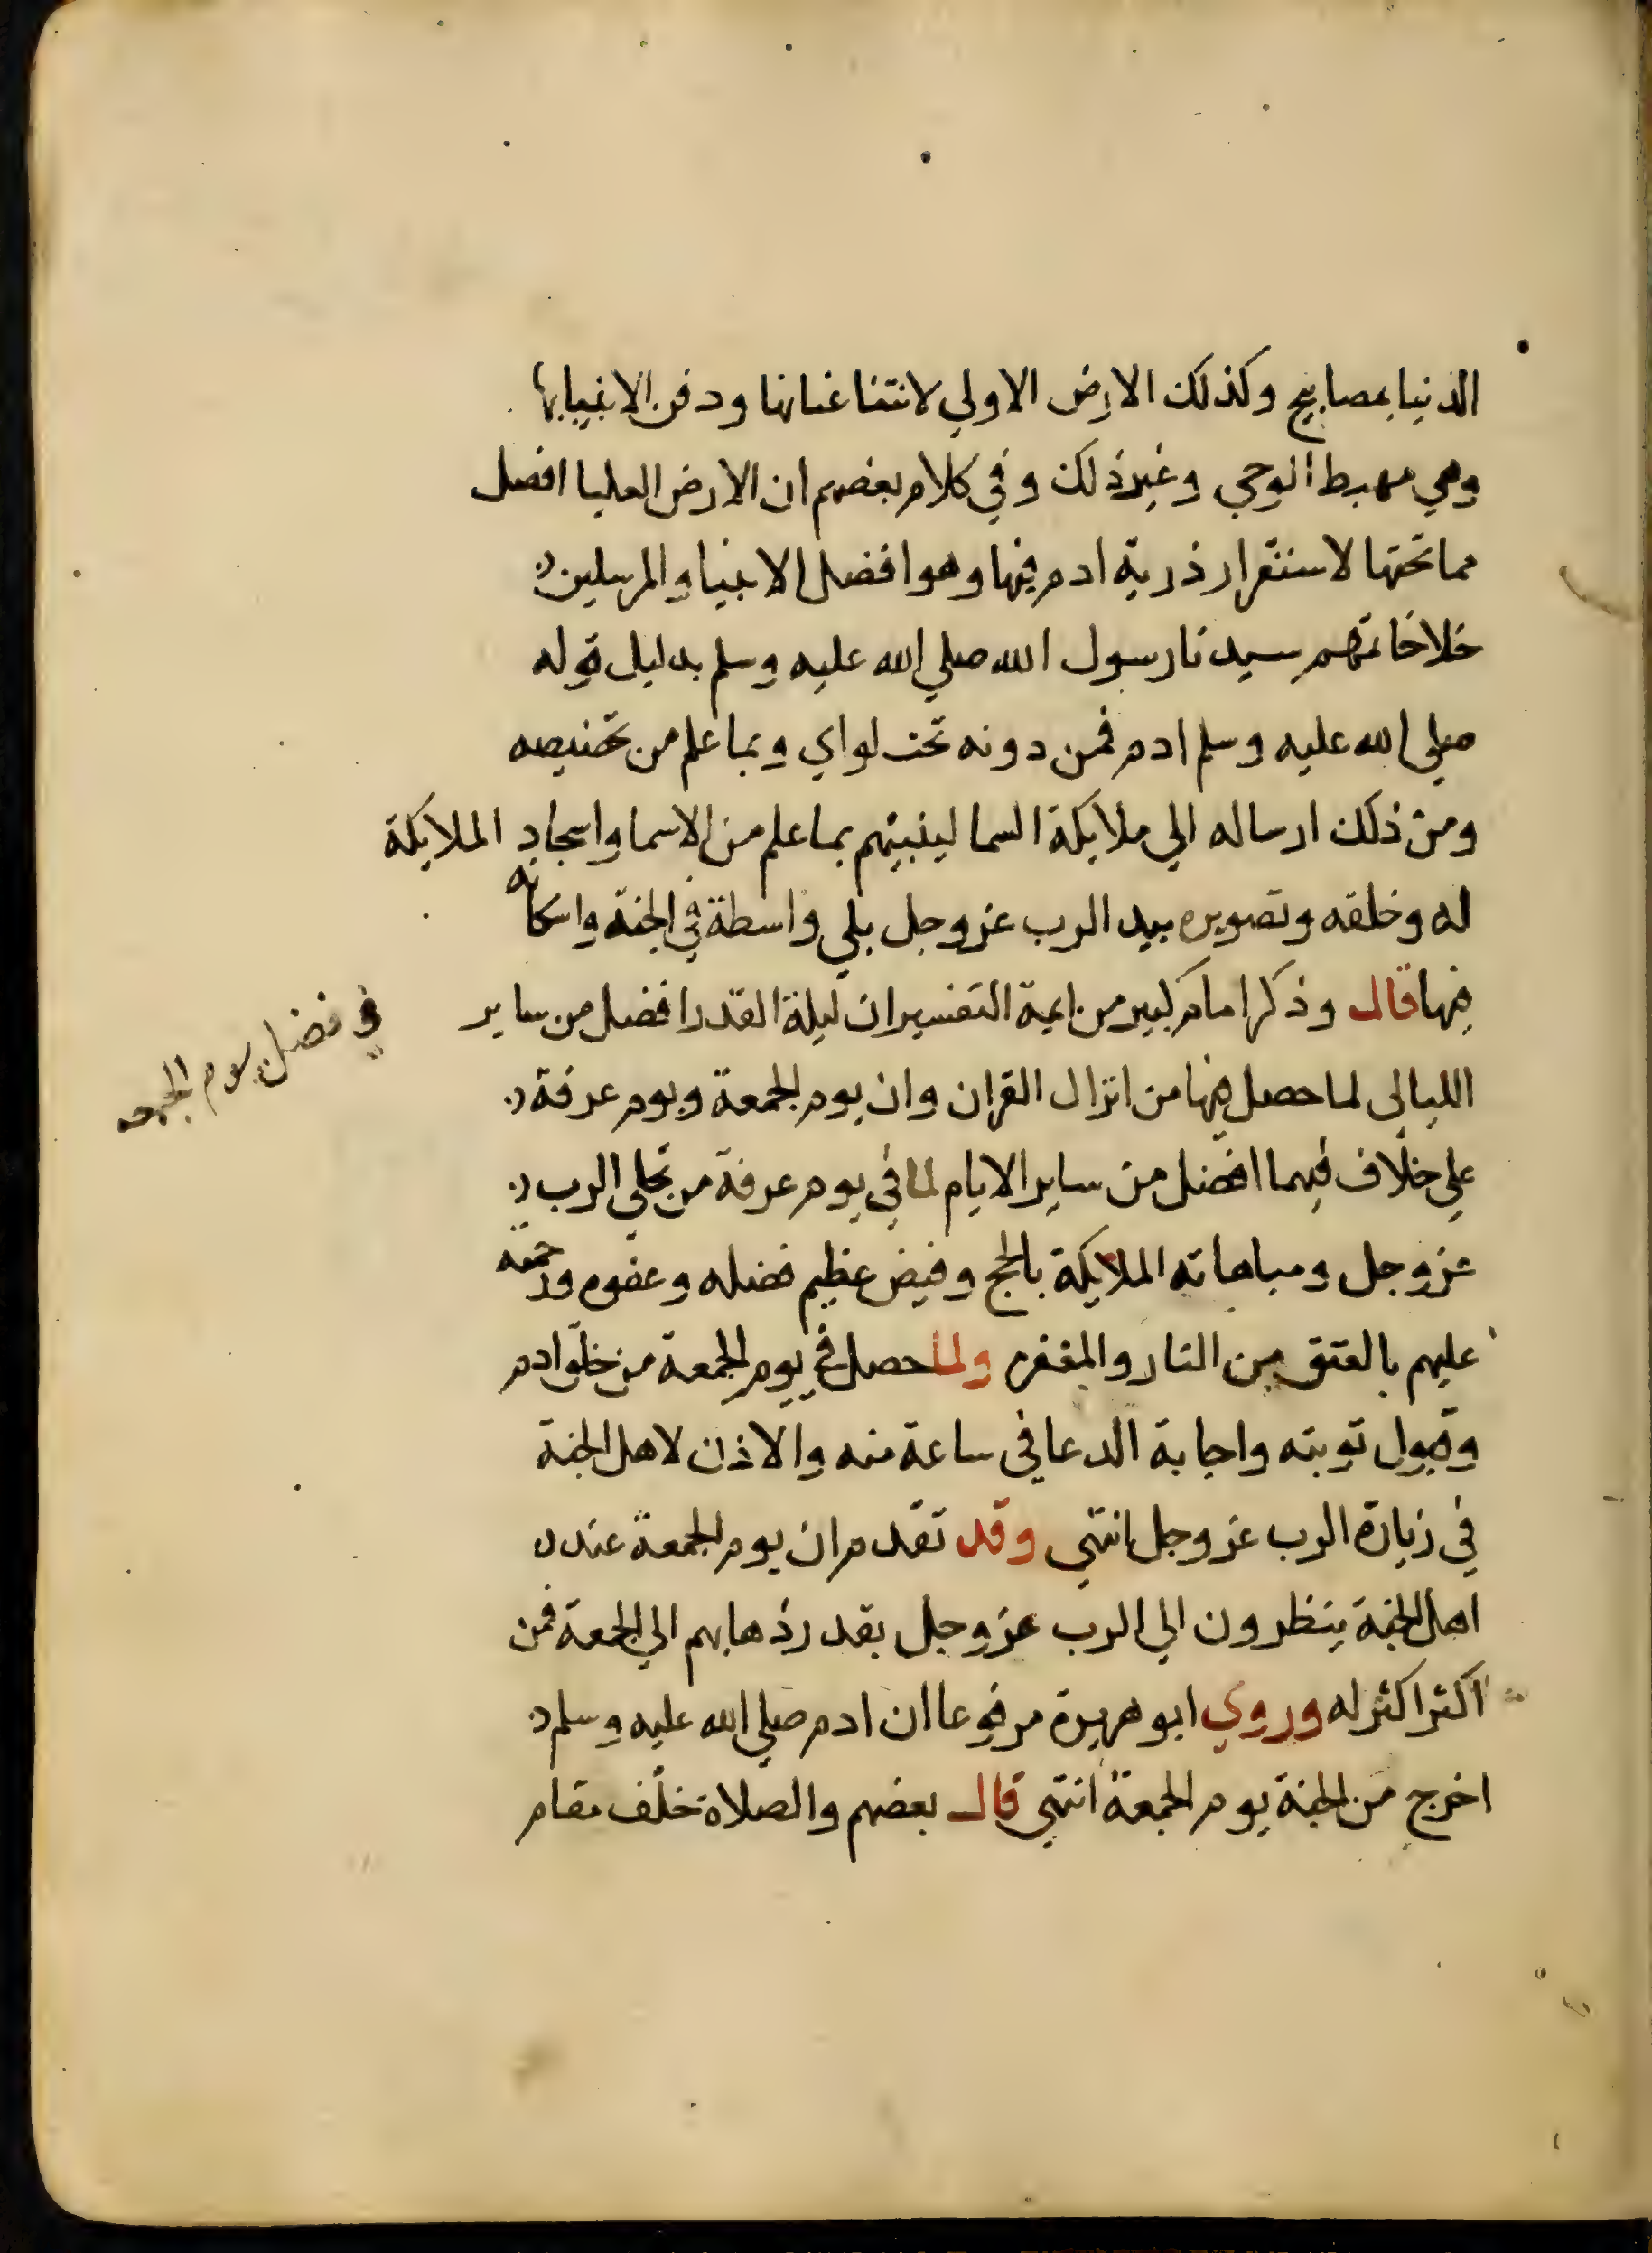 الدنيا بمصابيح وكذلك الارض الاولي لانتفاعنا بها ودفن الانبيا بها
وهي مهبط الوحي وغير ذلك وفي كلام بعضهم ان الارض العليا افضل
مما تحتها لاستقرار ذرية ادم فيها وهو افضل الانبيا والمرسلين
خلا خاتمهم سيدنا رسول الله صلي الله عليه وسلم بدليل قوله
صلي الله عليه وسلم ادم فمن دونه تحت لواي وبما علم من تخصيصه
ومن ذلك ارساله الي ملايكة السما لينبيهم بما علم من الاسما واسجاد الملايكة
له وخلقه وتصويره بيد الرب عز وجل بلي واسطة في الجنة واسكانه
فيها قال وذكر امام كبير من ايمة التفسير ان ليلة القدر افضل من ساير
الليالي لما حصل فيها من انزال القران وان يوم الجمعة ويوم عرفة
علي خلاف فيهما افضل من ساير الايام لما في يوم عرفة من تجلي الرب
عز وجل ومباهاته الملايكة بالحج وفيض عظيم فضله وعفوه ورحمته
عليهم بالعتق من النار والمغفره ولما حصل في يوم الجمعة من خلق ادم
وقبول توبته واجابة الدعا في ساعة منه والاذن لاهل الجنة
في زيارة الرب عز وجل انتهي وقد تقدم ان يوم الجمعة عند
اهل الجنة ينظرون الي الرب عز وجل بقدر ذهابهم الي الجمعة فمن
اكثر اكثر له وروي ابو هريرة مرفوعا ان ادم صلي الله عليه وسلم
اخرج من الجنة يوم الجمعة انتهي قال بعضهم والصلاة خلف مقام
في فضل يوم الجمعه